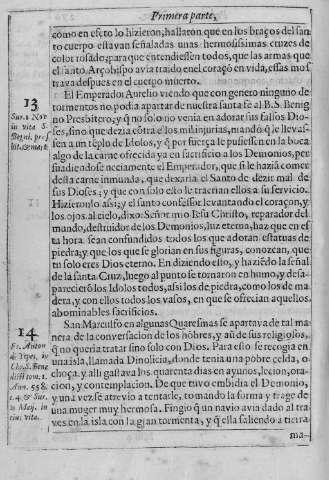 Primera parte,
como en efeto lo hizieron, hallaron que en los braços del san
to cuerpo estavan señaladas unas hermosissimas cruzes de
color rosado; para que entendiessen todos, que las armas que
el santo Arçobispo avia traido en el coraçõ en vida, essas mos
trava despues en el cuerpo muerto.
13
Sur. 1 Nov
in vita S.
El Emperador Aurelio viendo que con genero ninguno de
tormentos no podia apartar de nuestra santa fè al B. S. Benig
no Presbitero; y q̃ no solo no venia en adorar sus falsos Dio-
ses, sino que dezia cõtra ellos mil injurias, mandò q̃ le llevas-
sen a un tẽplo de Idolos, y q̃ por fuerça le pusiessen en la boca
algo de la carne ofrecida ya en sacrificio a los Demonios, per
suadiendose neciamente el Emperador, que si le hazia comer
desta carne inmunda, que dexaria el Santo de dezir mal de
sus Dioses; y que con solo esto le traerian ellos a su servicio.
Hizieronlo assi; y el santo confessor levantando el coraçon, y
los ojos al cielo, dixo: Señor mio Iesu Christo, reparador del
mundo, destruidor de los Demonios, luz eterna, haz que en es
ta hora sean confundidos todos los que adoran estatuas de
piedra; y que los que se glorian en sus figuras, conozcan, que
tu solo eres Dios eterno. En diziendo esto, y haziẽdo la señal
de la santa Cruz, luego al punto se tornaron en humo, y desa-
parecierõ los Idolos todos, assi los de piedra, como los de ma
dera, y con ellos todos los vasos, en que se ofrecian aquellos
abominables sacrificios.
14
Fr. Anton
de Yepes,
San Marculfo en algunas Quaresmas se apartava de tal ma
nera de la conversacion de los hõbres, y aũ de sus religiosos,
q̃ no queria tratar sino solo con Dios. Para esto se recogia en
una isla, llamada Dinolicia, donde tenia una pobre celda, o
choça, y alli gastava los quarenta dias en ayunos, lecion, ora-
cion, y contemplacion. De que tuvo embidia el Demonio,
y una vez se atrevio a tentarle, tomando la forma y trage de
una muger muy hermosa. Fingiò q̃ un navio avia dado al tra
ves en la isla con la grã tormenta, y q̃ ella saliendo a tierra
ma-